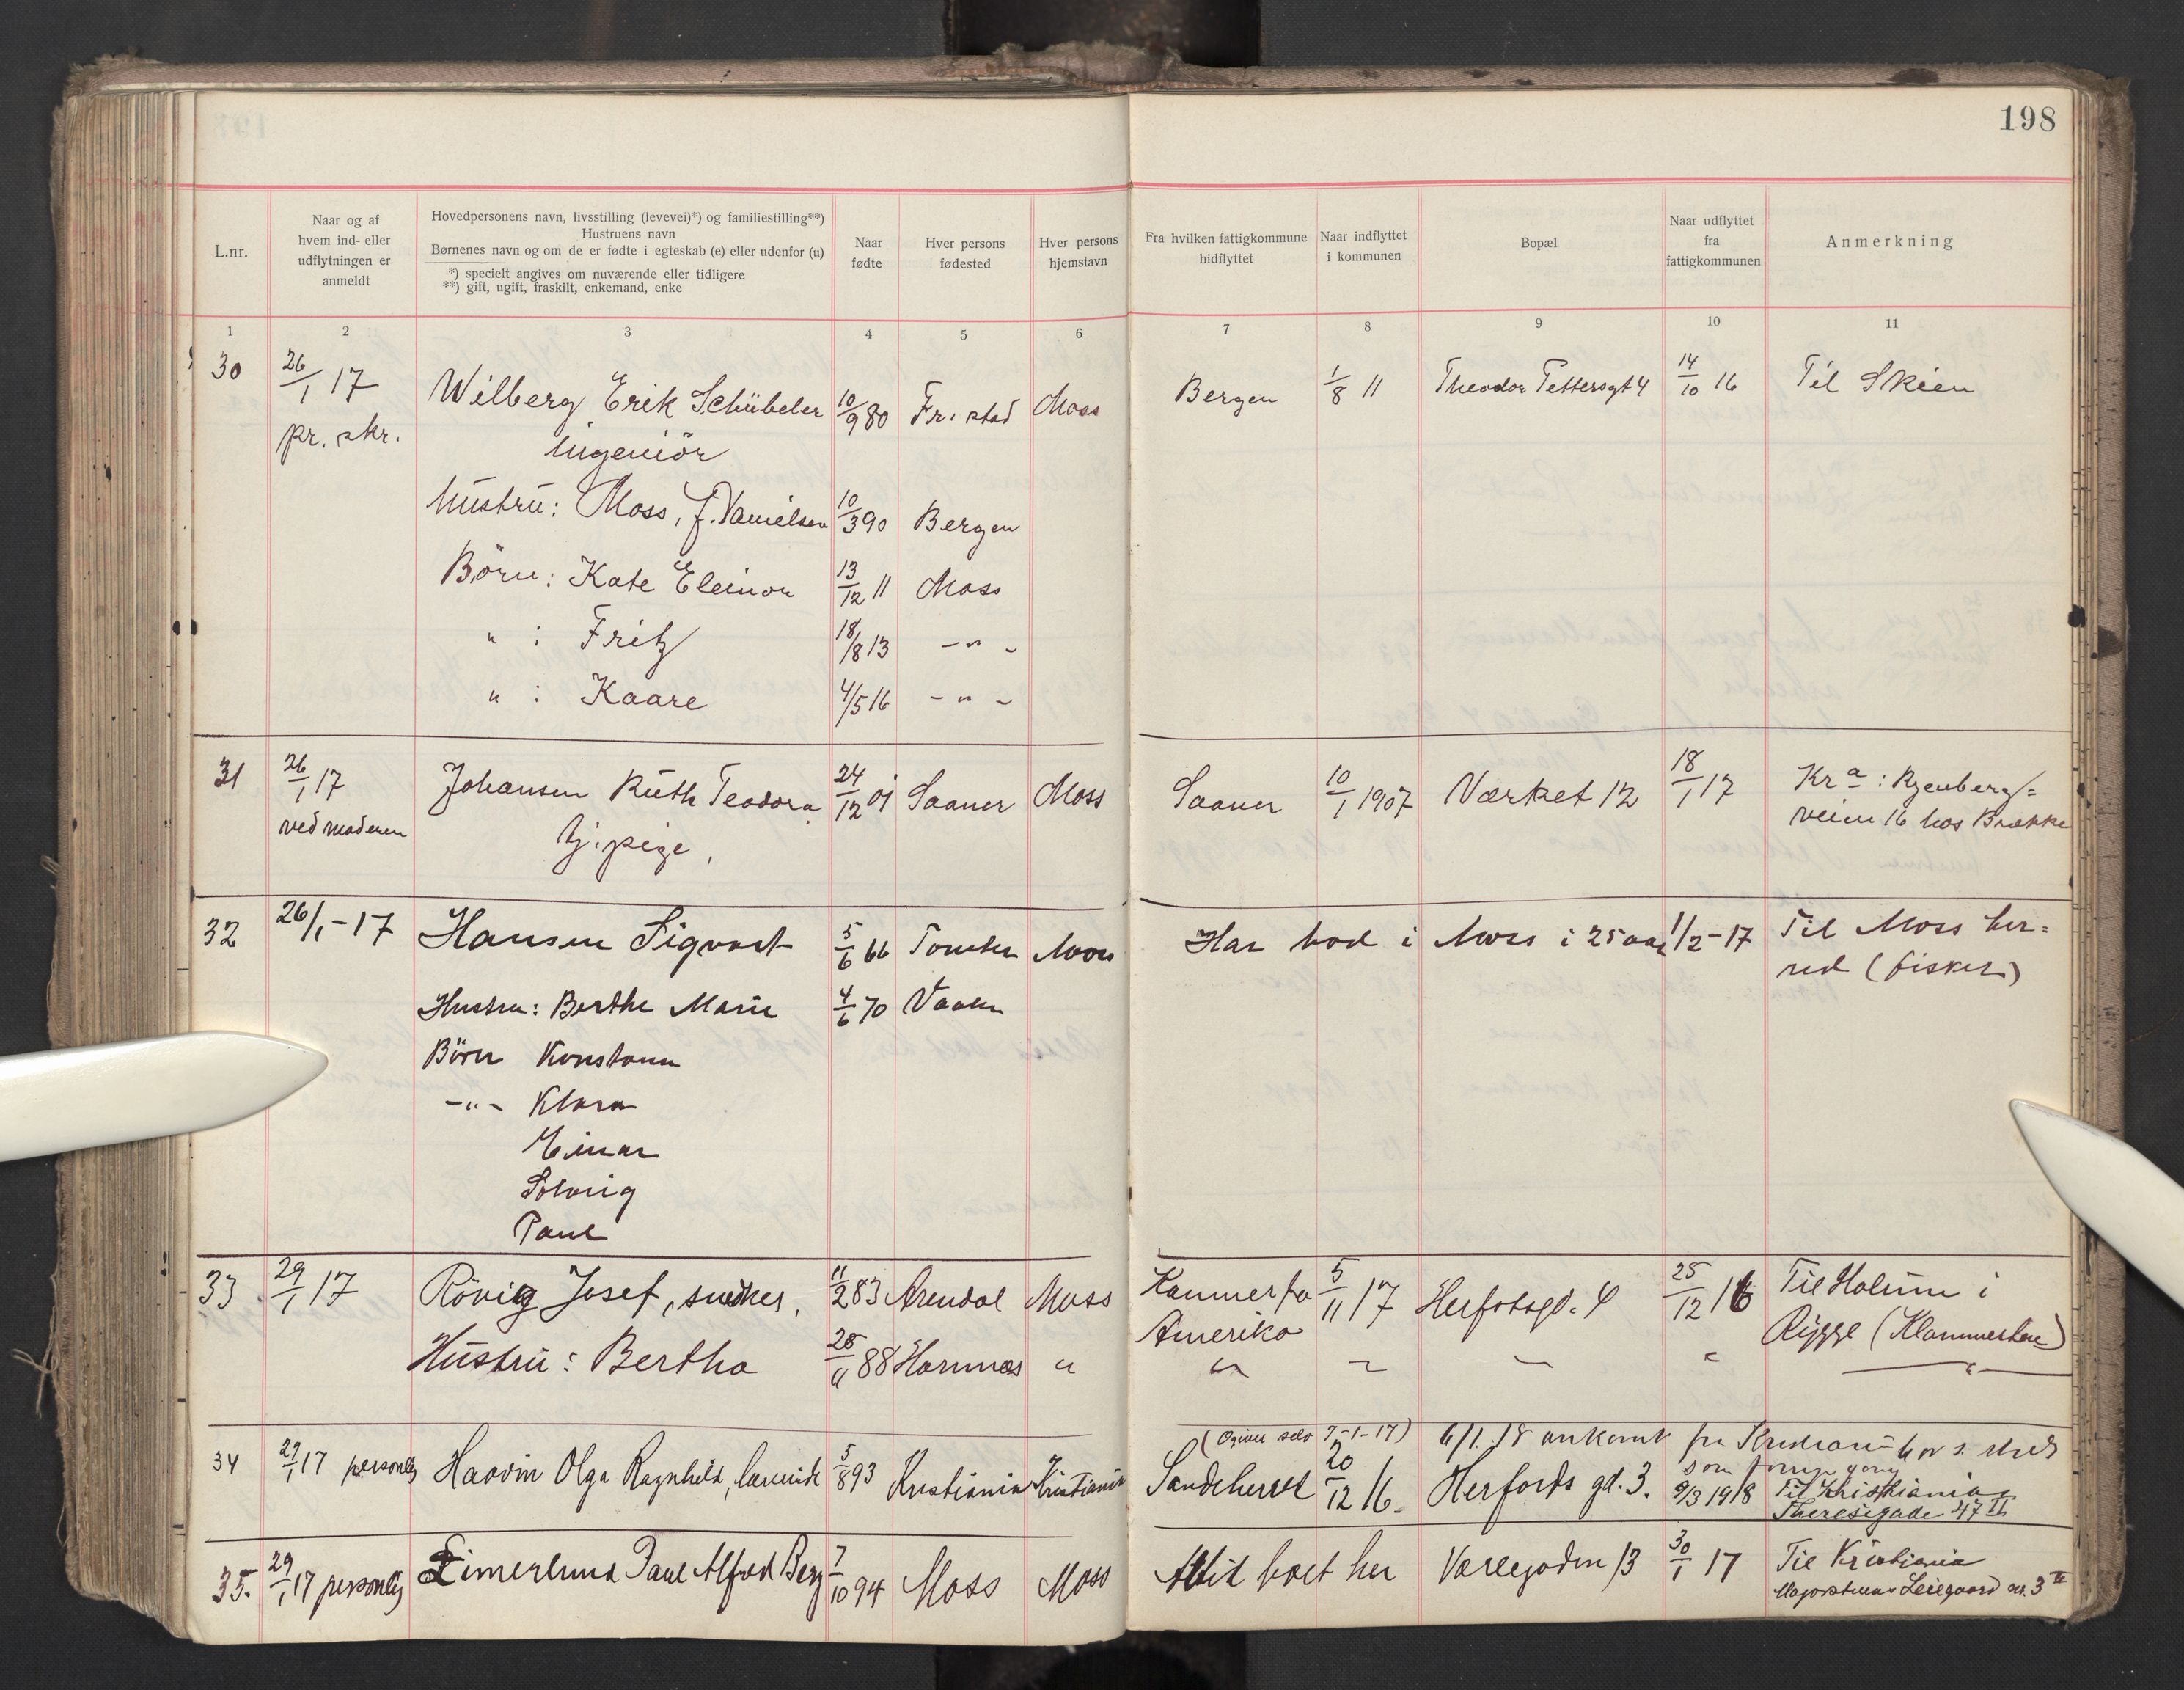 198
L.nr.
Naar og af
hvem ind- eller
udflytningen er
anmeldt
Hovedpersonens navn, livsstilling (levevei)*) og familiestilling**)
Hustruens navn
Børnenes navn og om de er fødte i egteskab (e) eller udenfor (u)
*) specielt angives om nuværende eller tidligere
**) gift, ugift, fraskilt, enkemand, enke
Naar
fødte
Hver persons
fødested
Hver persons
hjemstavn
Fra hvilken fattigkommune
hidflyttet
Naar indflyttet
i kommunen
Bopæl
Naar udflyttet
fra
fattigkommunen
Anmerkning
1 2 3 4 5 6 7 8 9 10 11
30 26/1 17 Wilberg Erik Schübeler 10/9 80 Fr.stad Moss Bergen 1/8 11 Theodor Pettersgt 4 14/10 16 Til Skien
pr. skr. Ingeniör
Hustru: Moss, f. Danielsen 10/3 90 Bergen
Börn: Kate Eleinor 13/12 11 Moss
" : Fritz 18/8 13 - " -
" : Kaare 4/5 16 - " -
31 26/1 17 Johansen Ruth Teodora 24/12 01 Saaner Moss Saaner 10/1 1907 Værket 12 18/1 17 Kra: Ryenberg=
ved moderen tj.pige, veien 16 hos Brække
32 26/1-17 Hansen Sigvart 5/6 66 Tomter Moss Har bod i Moss i 25 aar 1/2-17 Til Moss her=
red (fisker)
Hustru: Berthe Marie 4/6 70 Vaaler
Börn
-"- Klara
Einar
Solveig
Paul
33 29/1 17 Rövig Josef, snedker, 11/2 83 Arendal Moss 5/11 17 Herfotsgd. 4 25/12 16 Til Holum i
Amerika Rygge
Hustru: Bertha 88 "
34 29/1 17 personlig Haavin Olga Ragnhild, 5/8 93 Kristiania Kristiania (Opiver selv 7-1-17) 6/1.18 ankomt fra
Sandeherred 20/12 16. Herfords gd. 3. 9/3 1918 Til Kristiania
Theresigade 47 II
35. 29/1 17 personlig Limerlund Paul Alfred Berg 7/10 94 Moss Moss Altid boet her Varlegaden 13 30/1 17 Til Kristiania
Majorstuens Leiegaard nr. 3